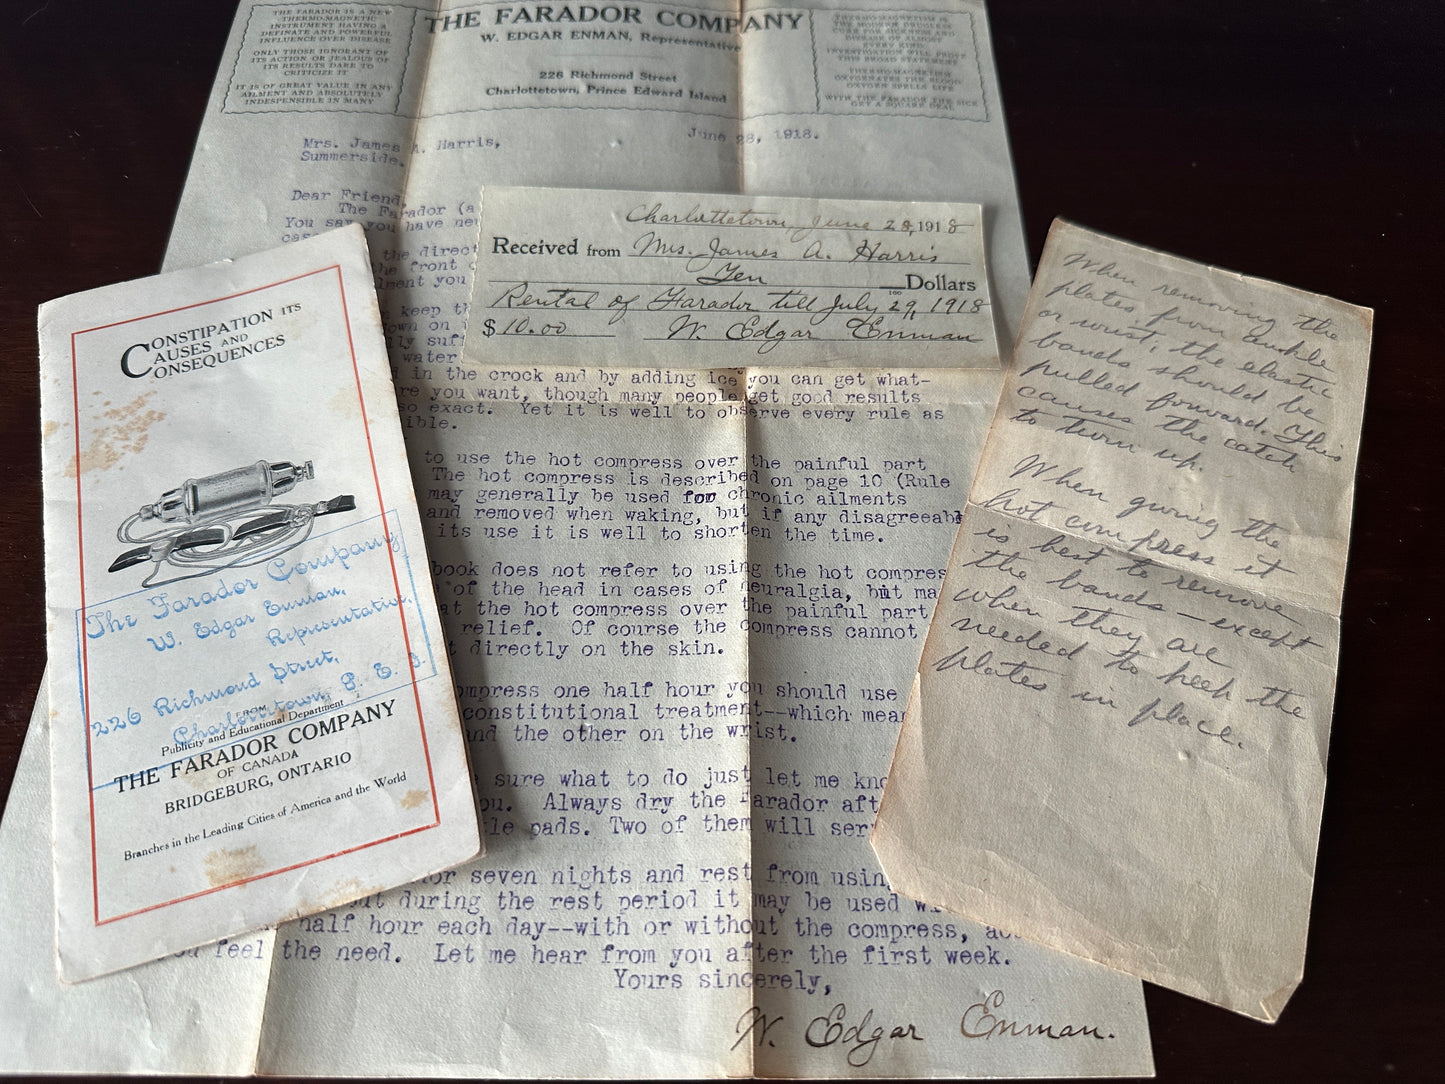 THE FARADOR IS A NEW
THERMO-MAGNETIC
INSTRUMENT HAVING A
DEFINATE AND POWERFUL
INFLUENCE OVER DISEASE
ONLY THOSE IGNORANT OF
ITS ACTION OR JEALOUS OF
ITS RESULTS DARE TO
CRITICIZE IT
IT IS OF GREAT VALUE IN ANY
AILMENT AND ABSOLUTELY
INDESPENSIBLE IN MANY
THE FARADOR COMPANY
W. EDGAR ENMAN, Representative
226 Richmond Street
Charlottetown, Prince Edward Island
THERMO-MAGNETISM IS
THE MODERN DRUGLESS
CURE FOR SICKNESS AND
DISEASE OF ALMOST
EVERY KIND.
INVESTIGATION WILL PROVE
THIS BROAD STATEMENT
THERMO-MAGNETISM
OXYGENATES THE BLOOD
OXYGEN SPELLS LIFE
WITH THE FARADOR THE SICK
GET A SQUARE DEAL
June 28, 1918.
Mrs. James A. Harris,
Summerside.
Dear Friend,
The Farador (a
You say you have
the direct
the front
you
keep th
own on
water
in the crock and by adding ice you can get what-
you want, though many people get good results
so exact. Yet it is well to observe every rule as
to use the hot compress over the painful part
The hot compress is described on page 10 (Rule
may generally be used for chronic ailments
and removed when waking, but if any disagreeabl
its use it is well to shorten the time.
book does not refer to using the hot compres
of the head in cases of neuralgia, but ma
the hot compress over the painful part
relief. Of course the compress cannot
directly on the skin.
compress one half hour you should use
constitutional treatment--which mean
and the other on the wrist.
sure what to do just let me kno
you. Always dry the Farador aft
pads. Two of them will ser
for seven nights and rest from usin
but during the rest period it may be used w
half hour each day--with or without the compress, ac
you feel the need. Let me hear from you after the first week.
Yours sincerely,
W. Edgar Enman.
Charlottetown, June 28, 1918
Received from Mrs. James A. Harris
Ten 100 Dollars
Rental of Farador till July 29, 1918
$ 10.00 W. Edgar Enman
CONSTIPATION ITS
CAUSES AND
CONSEQUENCES
The Farador Company
W. Edgar Enman,
Representative,
226 Richmond Street,
Charlottetown, P. E. I.
FROM
Publicity and Educational Department
THE FARADOR COMPANY
OF CANADA
BRIDGEBURG, ONTARIO
Branches in the Leading Cities of America and the World
When removing the
plates from ankle
or wrist, the elastic
bands should be
pulled forward. This
causes the catch
to turn up.
When giving the
hot compress it
is best to remove
the bands — except
when they are
needed to keep the
plates in place.